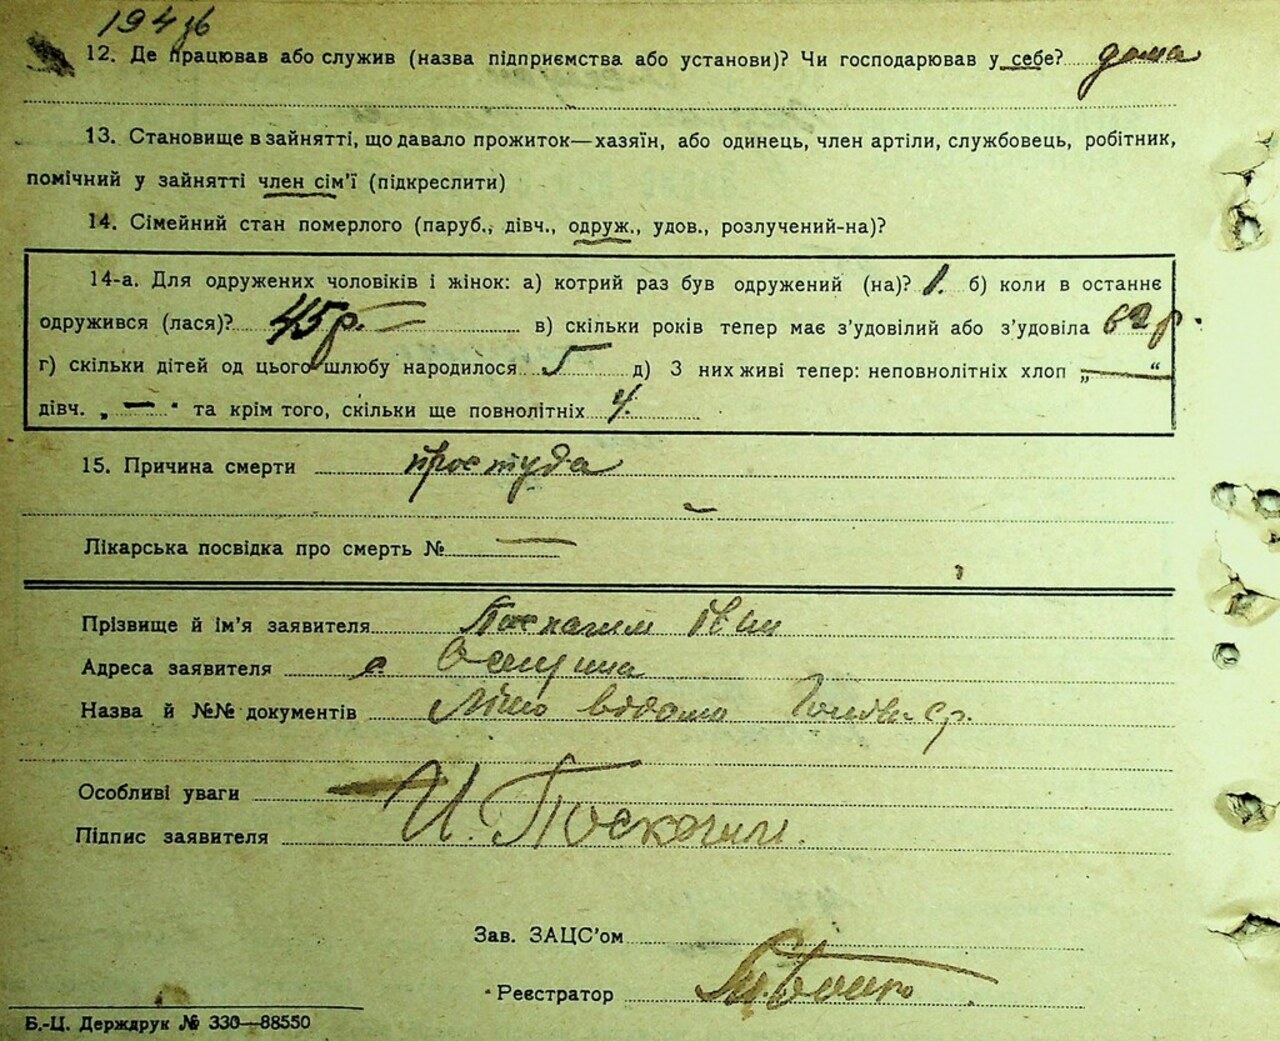 194
12. Де працював або служив (назва підприємства або установи)? Чи господарював у себе? дома
13. Становище в зайнятті, що давало прожиток—хазяїн, або одинець, член артілі, службовець, робітник,
помічний у зайнятті член сім'ї (підкреслити)
14. Сімейний стан померлого (паруб., дівч., одруж., удов., розлучений-на)?
14-а. Для одружених чоловіків і жінок: а) котрий раз був одружений (на)? 1. б) коли в останнє
одружився (лася)? 45 р. — в) скільки років тепер має з'удовілий або з'удовіла 62 р.
г) скільки дітей од цього шлюбу народилося 5 д) З них живі тепер: неповнолітніх хлоп „—“
дівч. „—" та крім того, скільки ще повнолітніх 4.
15. Причина смерти простуда
Лікарська посвідка про смерть № —
Прізвище й ім'я заявителя
Адреса заявителя с.
Назва й №№ документів відома
Особливі уваги
Підпис заявителя И.
Зав. ЗАЦС'ом
Реєстратор
Б.-Ц. Держдрук № 330—88550